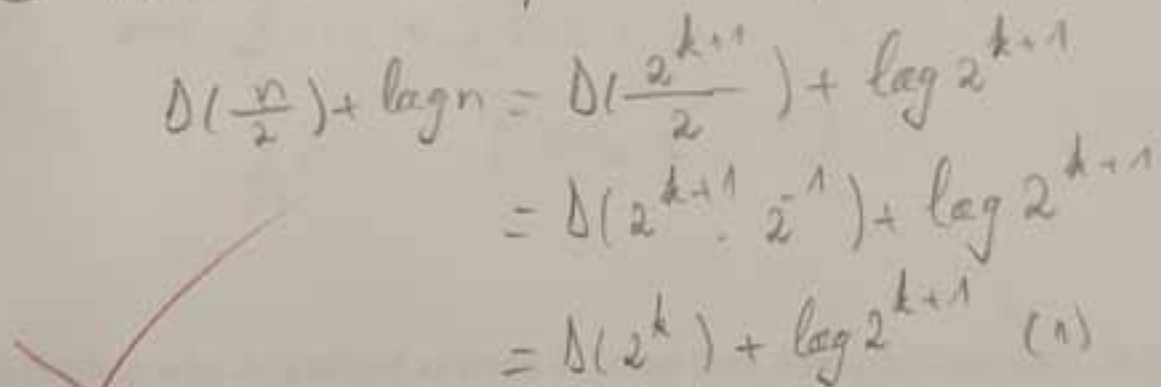 D(n/2) + log n = D(2^{k+1}/2) + log 2^{k+1}
= D(2^{k+1} · 2^{-1}) + log 2^{k+1}
= D(2^k) + log 2^{k+1} (1)